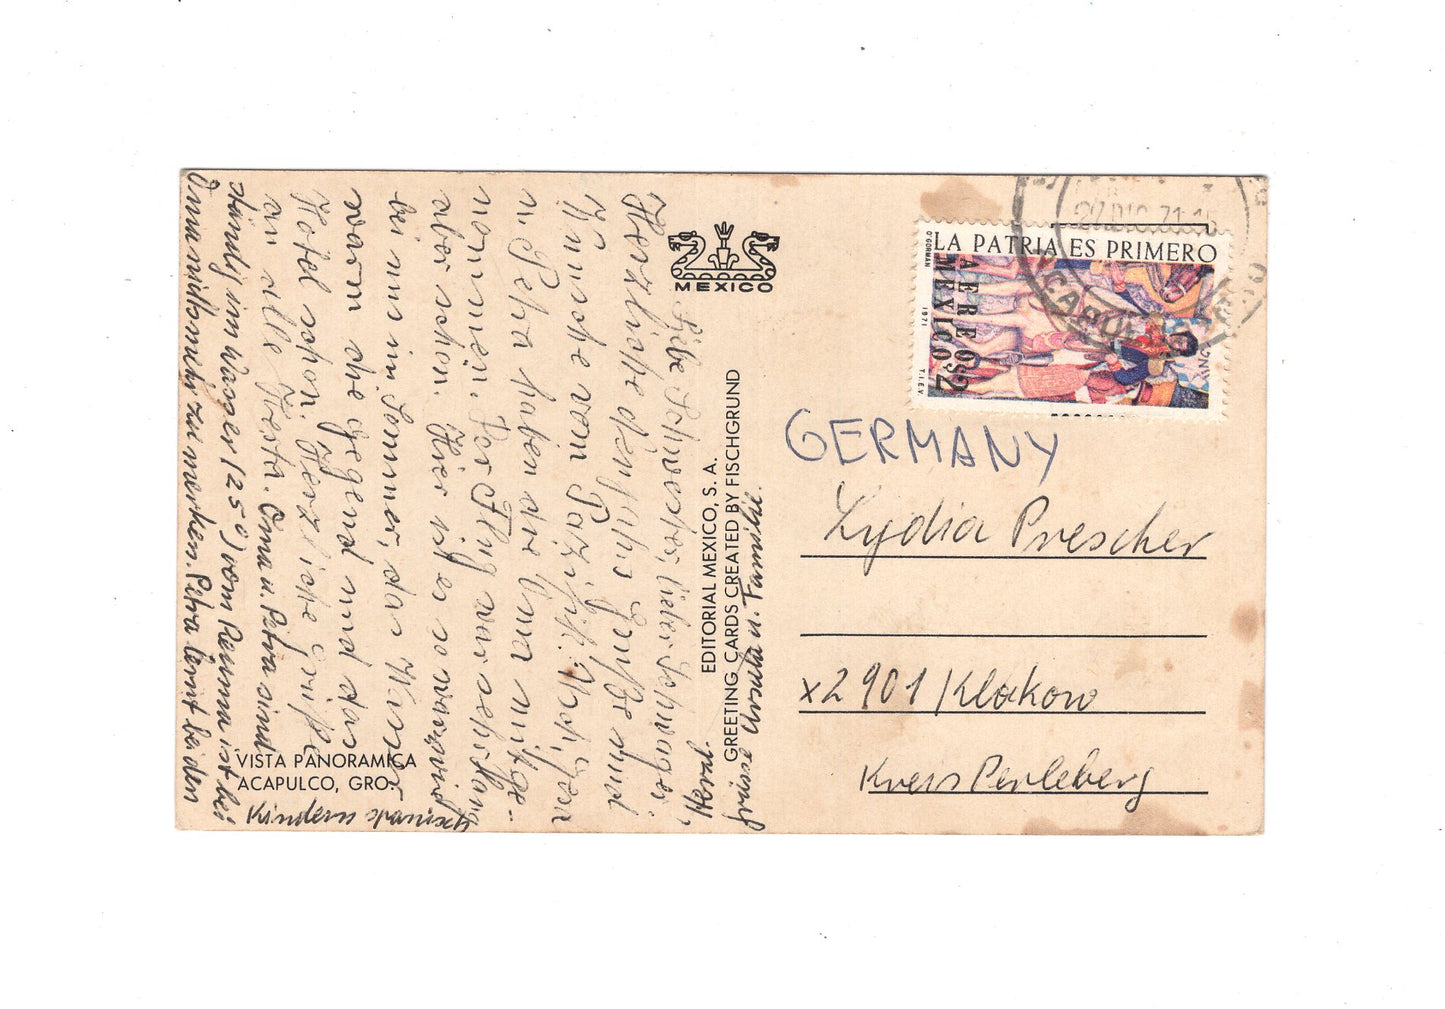 Liebe Schwester, lieber Schwager,
Herzliche
Wünsche vom Pazifik.
u. Petra haben die Oma mitge-
nommen. Der Flug war
aber schon. Hier ist es so warm wie
bei uns im Sommer, das Wasser
warm die Gegend und das
Hotel schön. Herzliche Grüße
an alle
Oma u. Petra sind
ständig im Wasser (25°) vom Rheuma ist bei
Oma nichts mehr zu merken. Petra lernt bei den
Kindern spanisch
Herzl.
Grüsse Ursula u. Familie.
VISTA PANORAMICA
ACAPULCO, GRO.
MEXICO
EDITORIAL MEXICO, S. A.
GREETING CARDS CREATED BY FISCHGRUND
LA PATRIA ES PRIMERO
AEREO $2
MEXICO
O'GORMAN
1971
T.I.E.V.
27 DIC. 71
GERMANY
Lydia Prescher
x2901 / Klokow
Kreis Perleberg